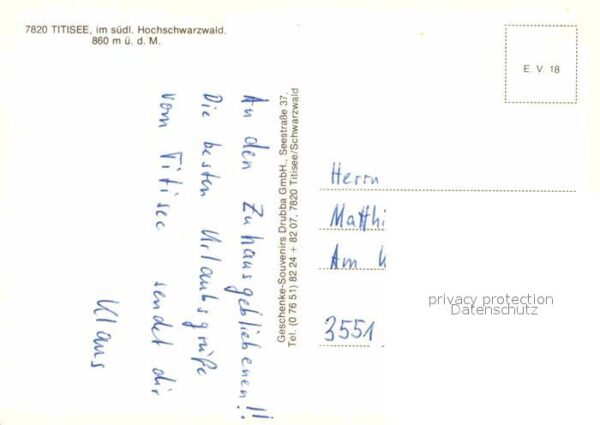 7820 TITISEE, im südl. Hochschwarzwald.
860 m ü. d. M.
E. V. 18
An den Zuhausgebliebenen!!
Die besten Urlaubsgrüße
vom Titisee sendet dir
Klaus
Geschenke-Souvenirs Drubba GmbH., Seestraße 37,
Tel. (0 76 51) 82 24 + 82 07, 7820 Titisee/Schwarzwald
Herrn
Matthi
Am
3551
privacy protection
Datenschutz